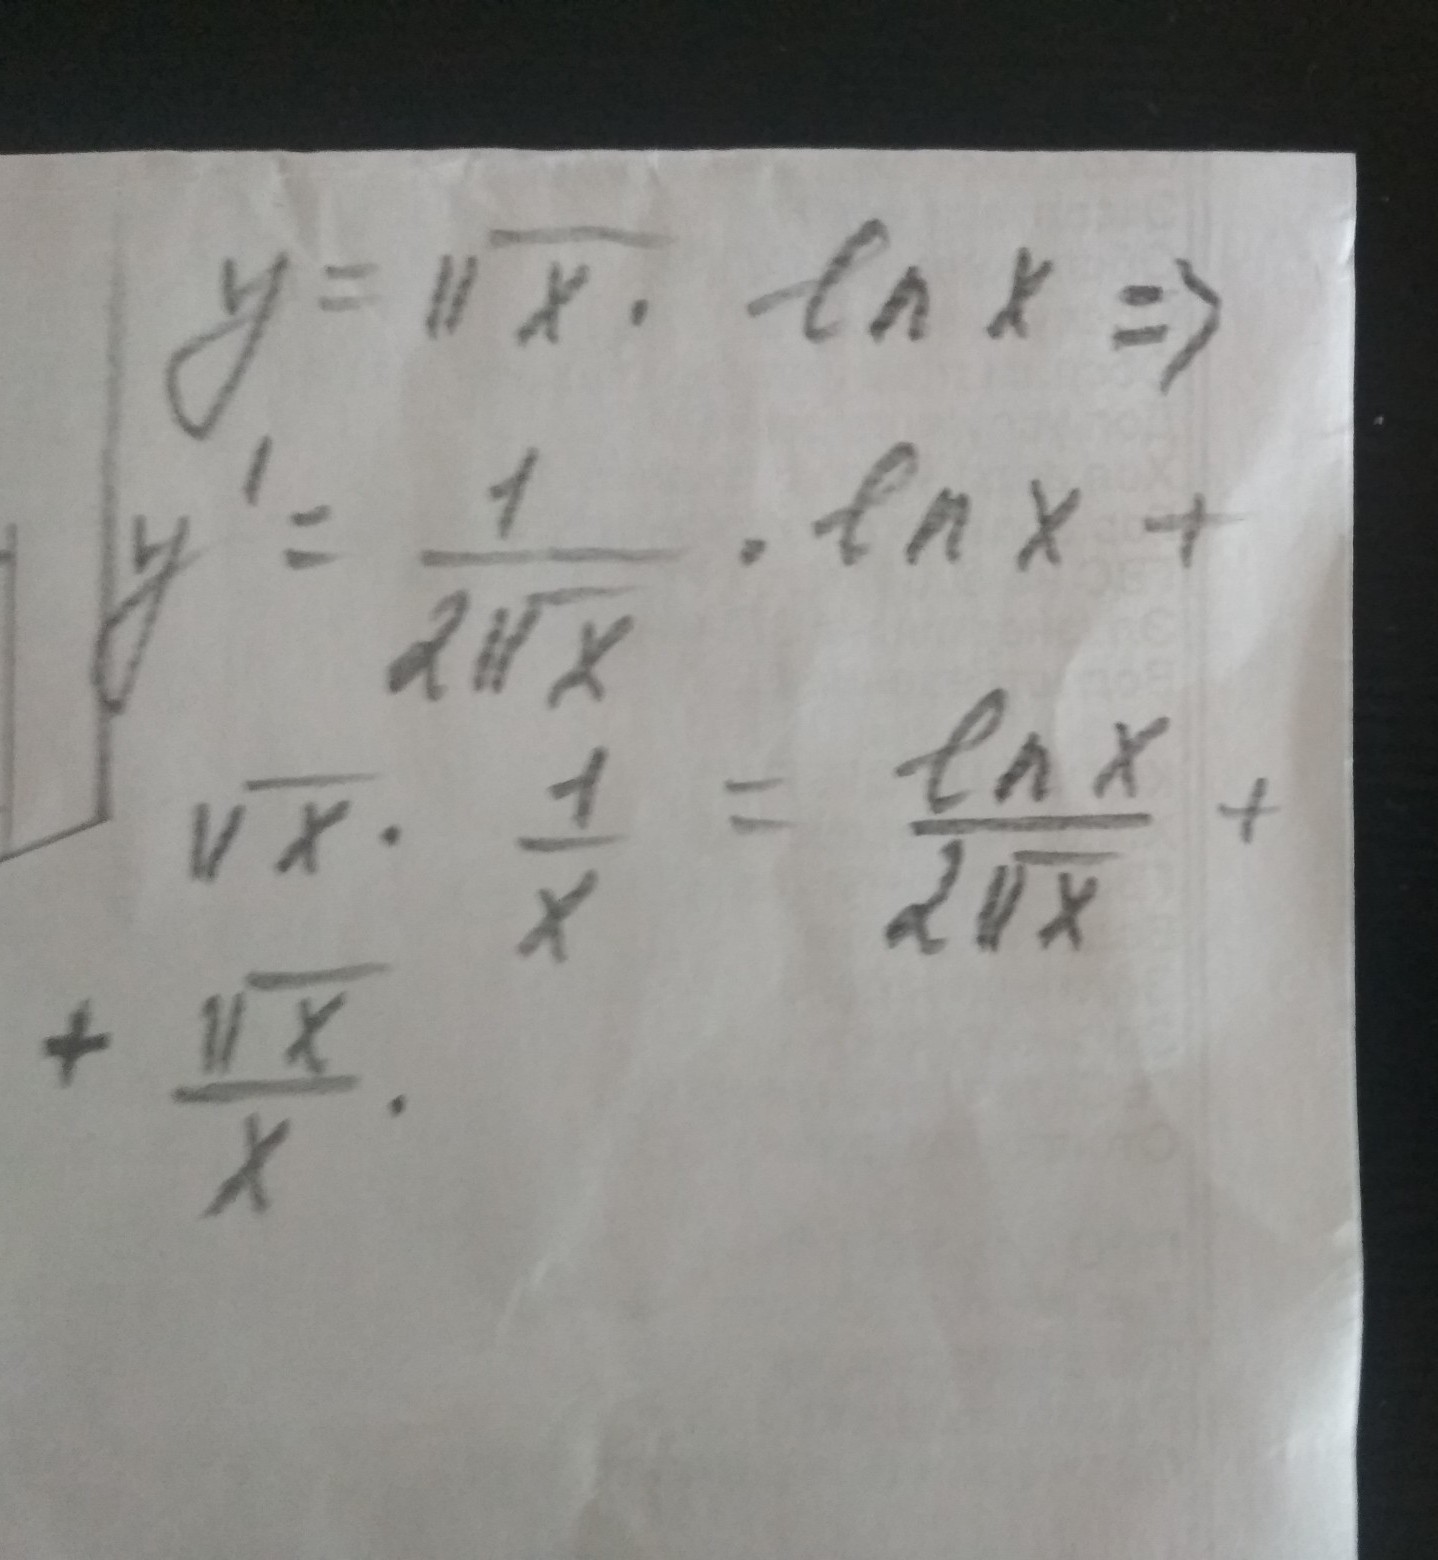 y = √x · ln x =>
y' = 1/(2√x) · ln x +
√x · 1/x = ln x/(2√x) +
+ √x/x .